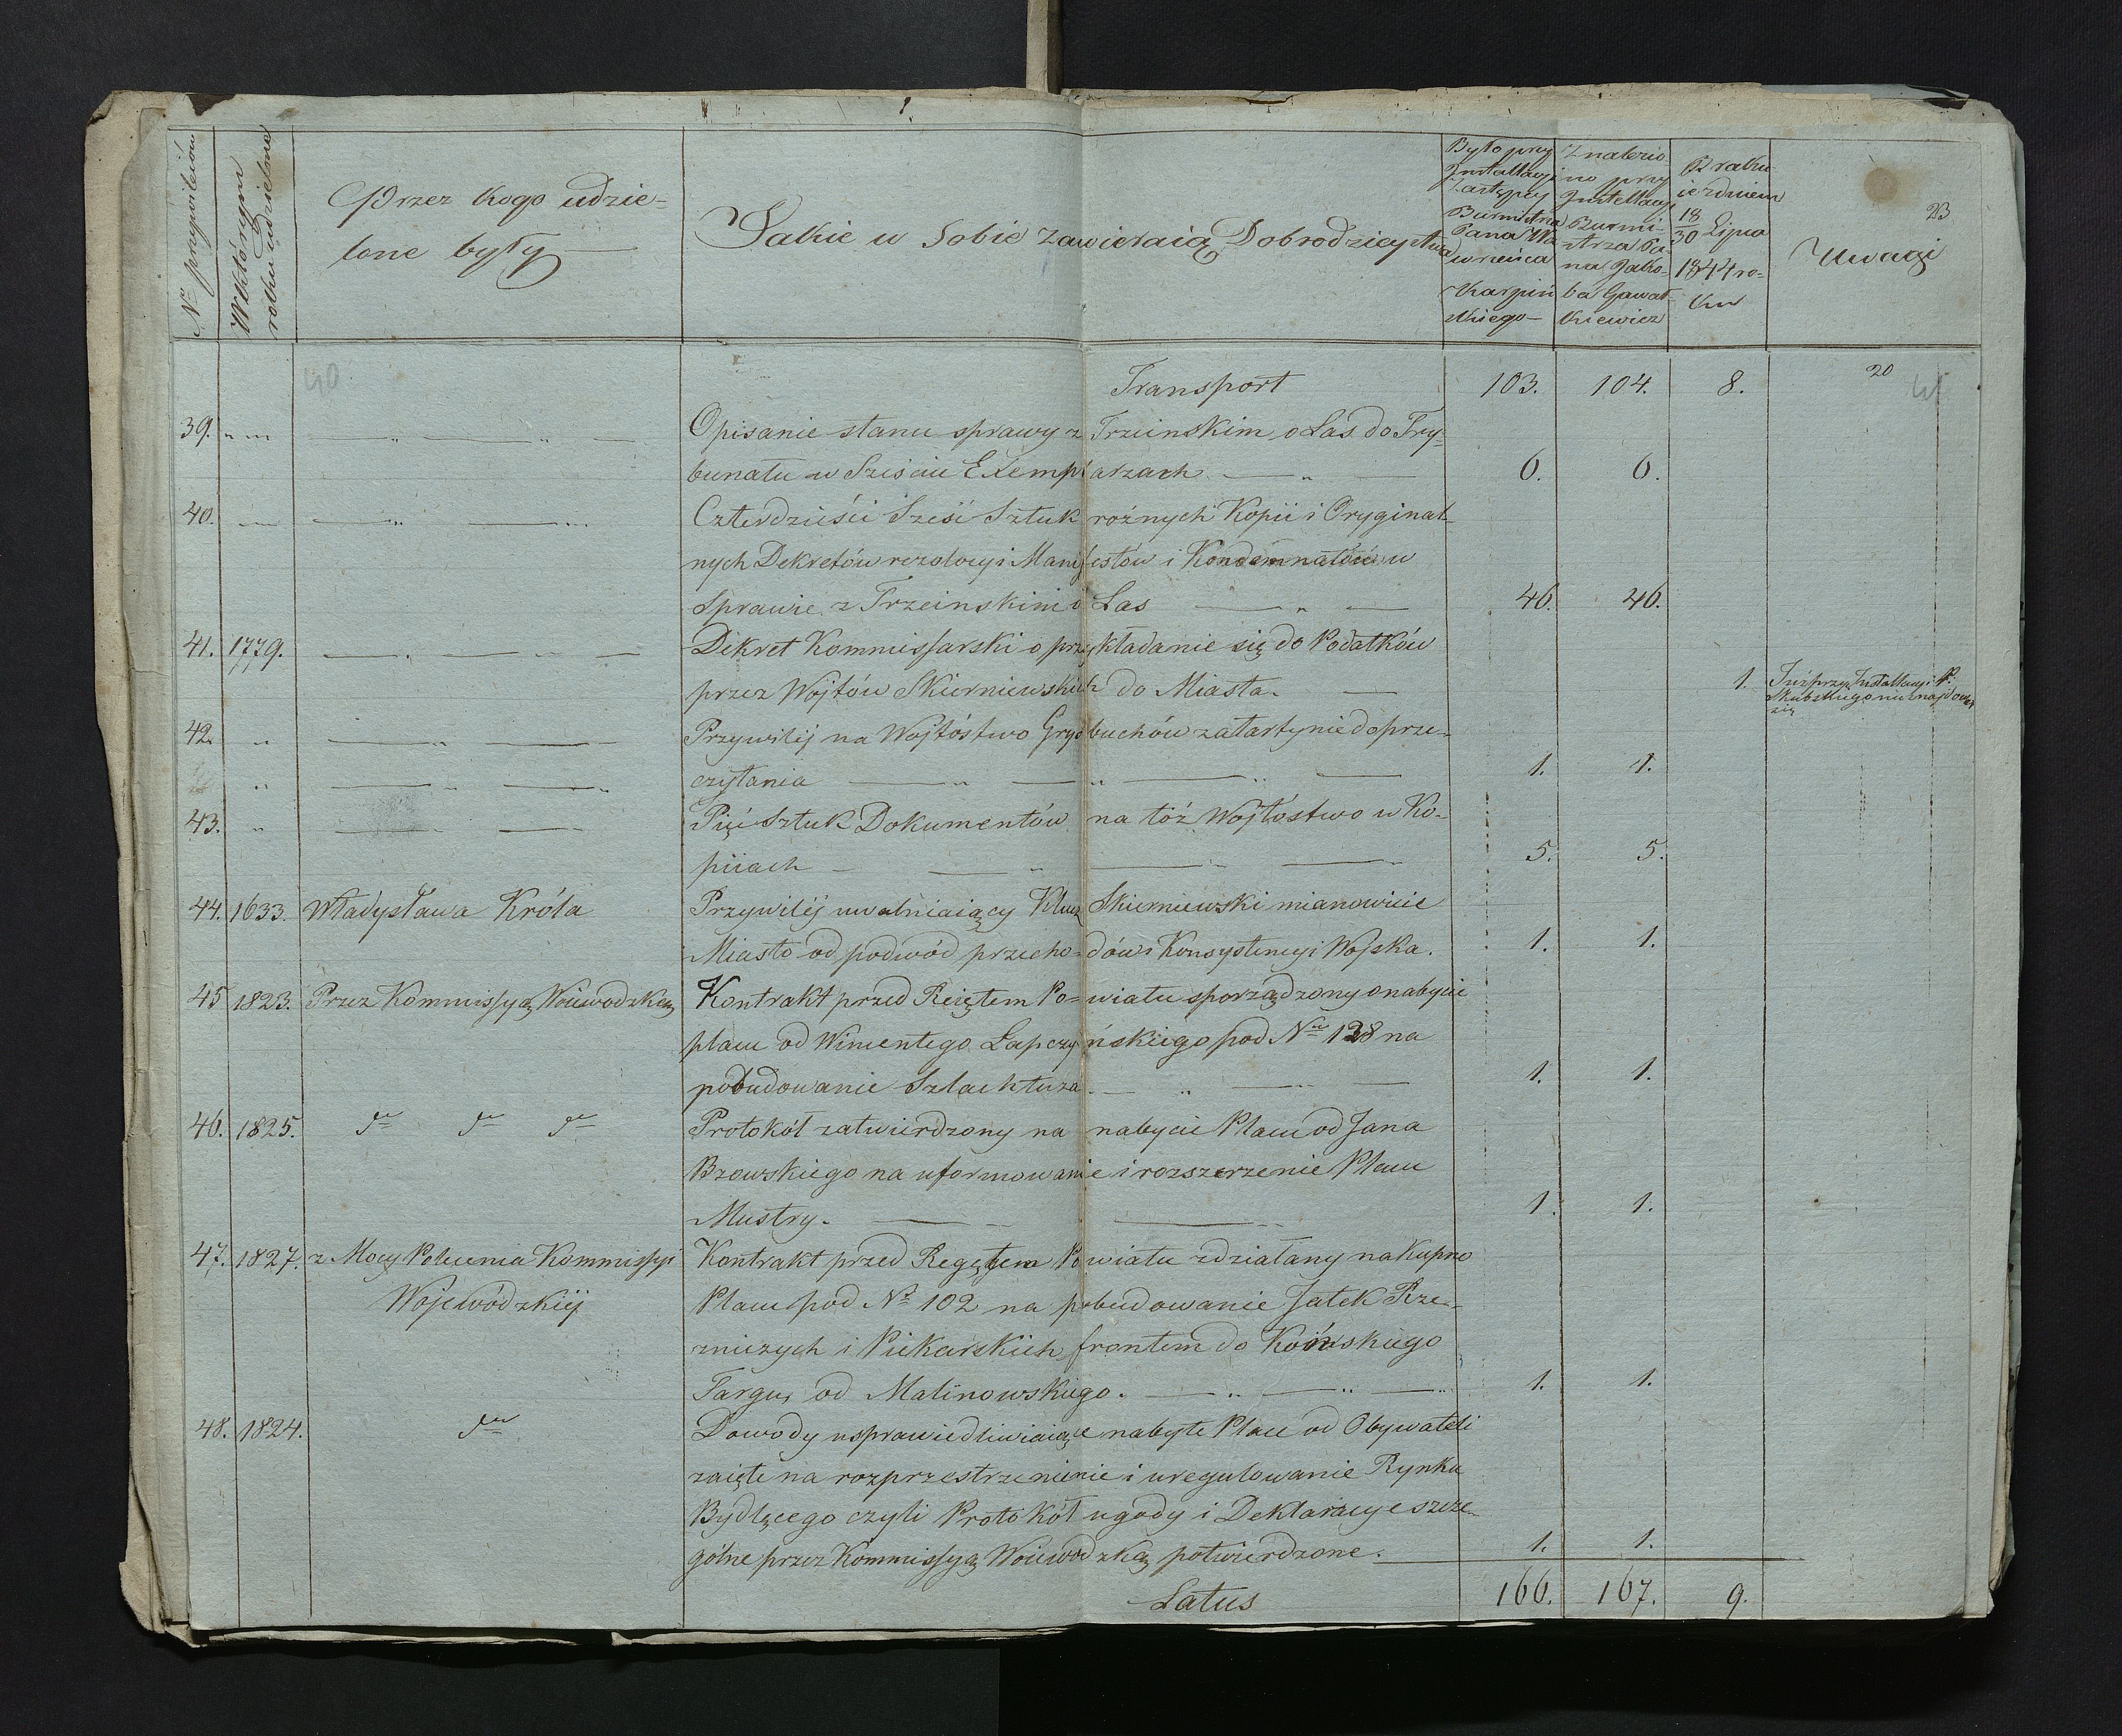 No przywileiów
W którym
roku udzielone
Przez kogo udzie-
lone były
Jakie w sobie zawieraią Dobrodzieystwa
Było przy
Installacyi
Zastępcy
Burmistrza
Pana Wa
wrzeńca
Karpiń
skiego
Znalezio
no przy
Installacyi
Burmi-
strza Pa-
na Jako-
ba Gawał-
kiewicz
Brakuie z dniem
18/30 Lipca
1844 ro-
ku
Uwagi
23
40
Transport 103. 104. 8.
20
41
39. Opisanie stanu sprawy z Trzcinskim o Las do Try-
bunału w Sześciu Exemplarzach 6. 6.
40. Czterdzieści Sześć Sztuk rożnych Kopii i Oryginal-
nych Dekretów rezolucyi Manifestów i Kondemnatów w
Sprawie z Trzcinskim o Las 46. 46.
41. 1779. Dekret Kommissarski o przykładanie się do Podatków
przez Wojtów Skierniewskich do Miasta. 1. Już przy Installacyi P.
nie znajdował
się
42. Przywiléj na Wojtóstwo Grysbuchów zatarty nie do prze-
czytania 1. 1.
43. Pięć Sztuk Dokumentów na tóż Wojtostwo w Ko-
piiach 5. 5.
44. 1633. Władysława Króla Przywiléj uwalniaiący Klucz Skierniewski mianowicie
Miasto od podwód przechodów i Konsystencyi Wojska. 1. 1.
45 1823. Przez Kommissyą Woiewodzką Kontrakt przed Reiętem Po=wiatu sporządzony o nabycie
placu od Wincentego Łapczyńskiego pod Nrem 138 na
pobudowanie Szlachtuza 1. 1.
46. 1825. dto dto dto Protokół zatwierdzony na nabycie Placu od Jana
Bzowskiego na uformowanie i rozszerzenie Placu
Mustry. 1. 1.
47. 1827. z Mocy Polecenia Kommissyi Kontrakt przed Regętem Powiatu zdziałany na Kupno
Wojewódzkiéj Placu pod No 102 na pobudowanie Jatek Rze-
zniczych i Piekarskich frontem do Końskiego
Targu, od Malinowskiego. 1. 1.
48. 1824. dto Dowody usprawiedliwiaiące nabyte Place od Obywateli
zaięte na rozprzestrzenienie i uregulowanie Rynku
Bydlęcego czyli Protokół ugody i Deklaracye szcze-
gólne przez Kommissyą Woiewodzką potwierdzone. 1. 1.
Latus 166. 167. 9.